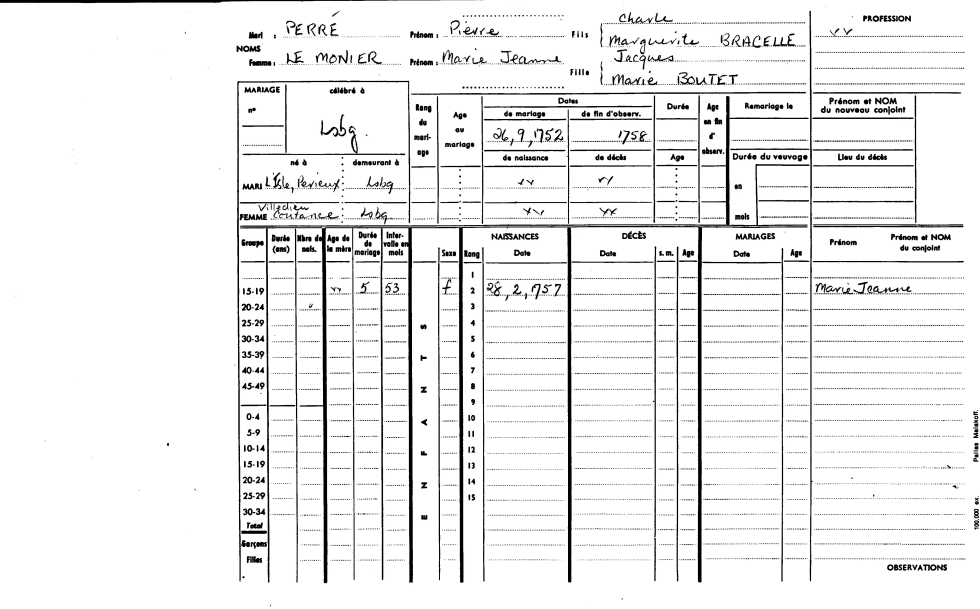 Mari : PERRÉ Prénom : Pierre Fils Charle PROFESSION
Marguerite BRACELLE
NOMS
Femme : LE MONIER Prénom : Marie Jeanne Fille Jacques
Marie BOUTET
MARIAGE célébré à
n° Lsbg.
Rang du mariage Age au mariage Dates Durée Age en fin d'observ. Remariage le Prénom et NOM du nouveau conjoint
de mariage de fin d'observ.
26,9,1752 1758
de naissance de décès Age Durée du veuvage Lieu du décès
né à demeurant à
MARI L'Isle, Perieux Lsbg en
FEMME Villedieu Coutance Lsbg mois
Groupe Durée (ans) Nbre de nais. Age de la mère Durée de mariage Intervalle en mois ENFANTS Sexe Rang NAISSANCES Date DÉCÈS Date s. m. Age MARIAGES Date Age Prénom Prénom et NOM du conjoint
1
15-19 5 53 f 2 28,2,1757 Marie Jeanne
20-24 3
25-29 4
30-34 5
35-39 6
40-44 7
45-49 8
9
0-4 10
5-9 11
10-14 12
15-19 13
20-24 14
25-29 15
30-34
Total
Garçons
Filles
OBSERVATIONS
100.000 ex. Pairies Malakoff.